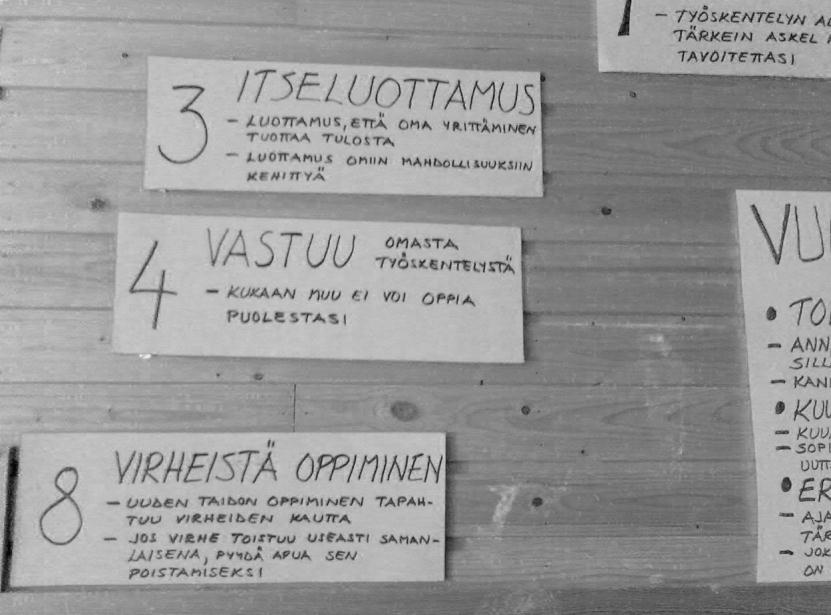 - TYÖSKENTELYN
TÄRKEIN ASKEL
TAVOITETTASI
3 ITSELUOTTAMUS
- LUOTTAMUS, ETTÄ OMA YRITTÄMINEN
TUOTTAA TULOSTA
- LUOTTAMUS OMIIN MAHDOLLISUUKSIIN
KEHITTYÄ
4 VASTUU OMASTA
TYÖSKENTELYSTÄ
- KUKAAN MUU EI VOI OPPIA
PUOLESTASI
8 VIRHEISTÄ OPPIMINEN
- UUDEN TAIDON OPPIMINEN TAPAH-
TUU VIRHEIDEN KAUTTA
- JOS VIRHE TOISTUU USEASTI SAMAN-
LAISENA, PYYDÄ APUA SEN
POISTAMISEKSI
ON